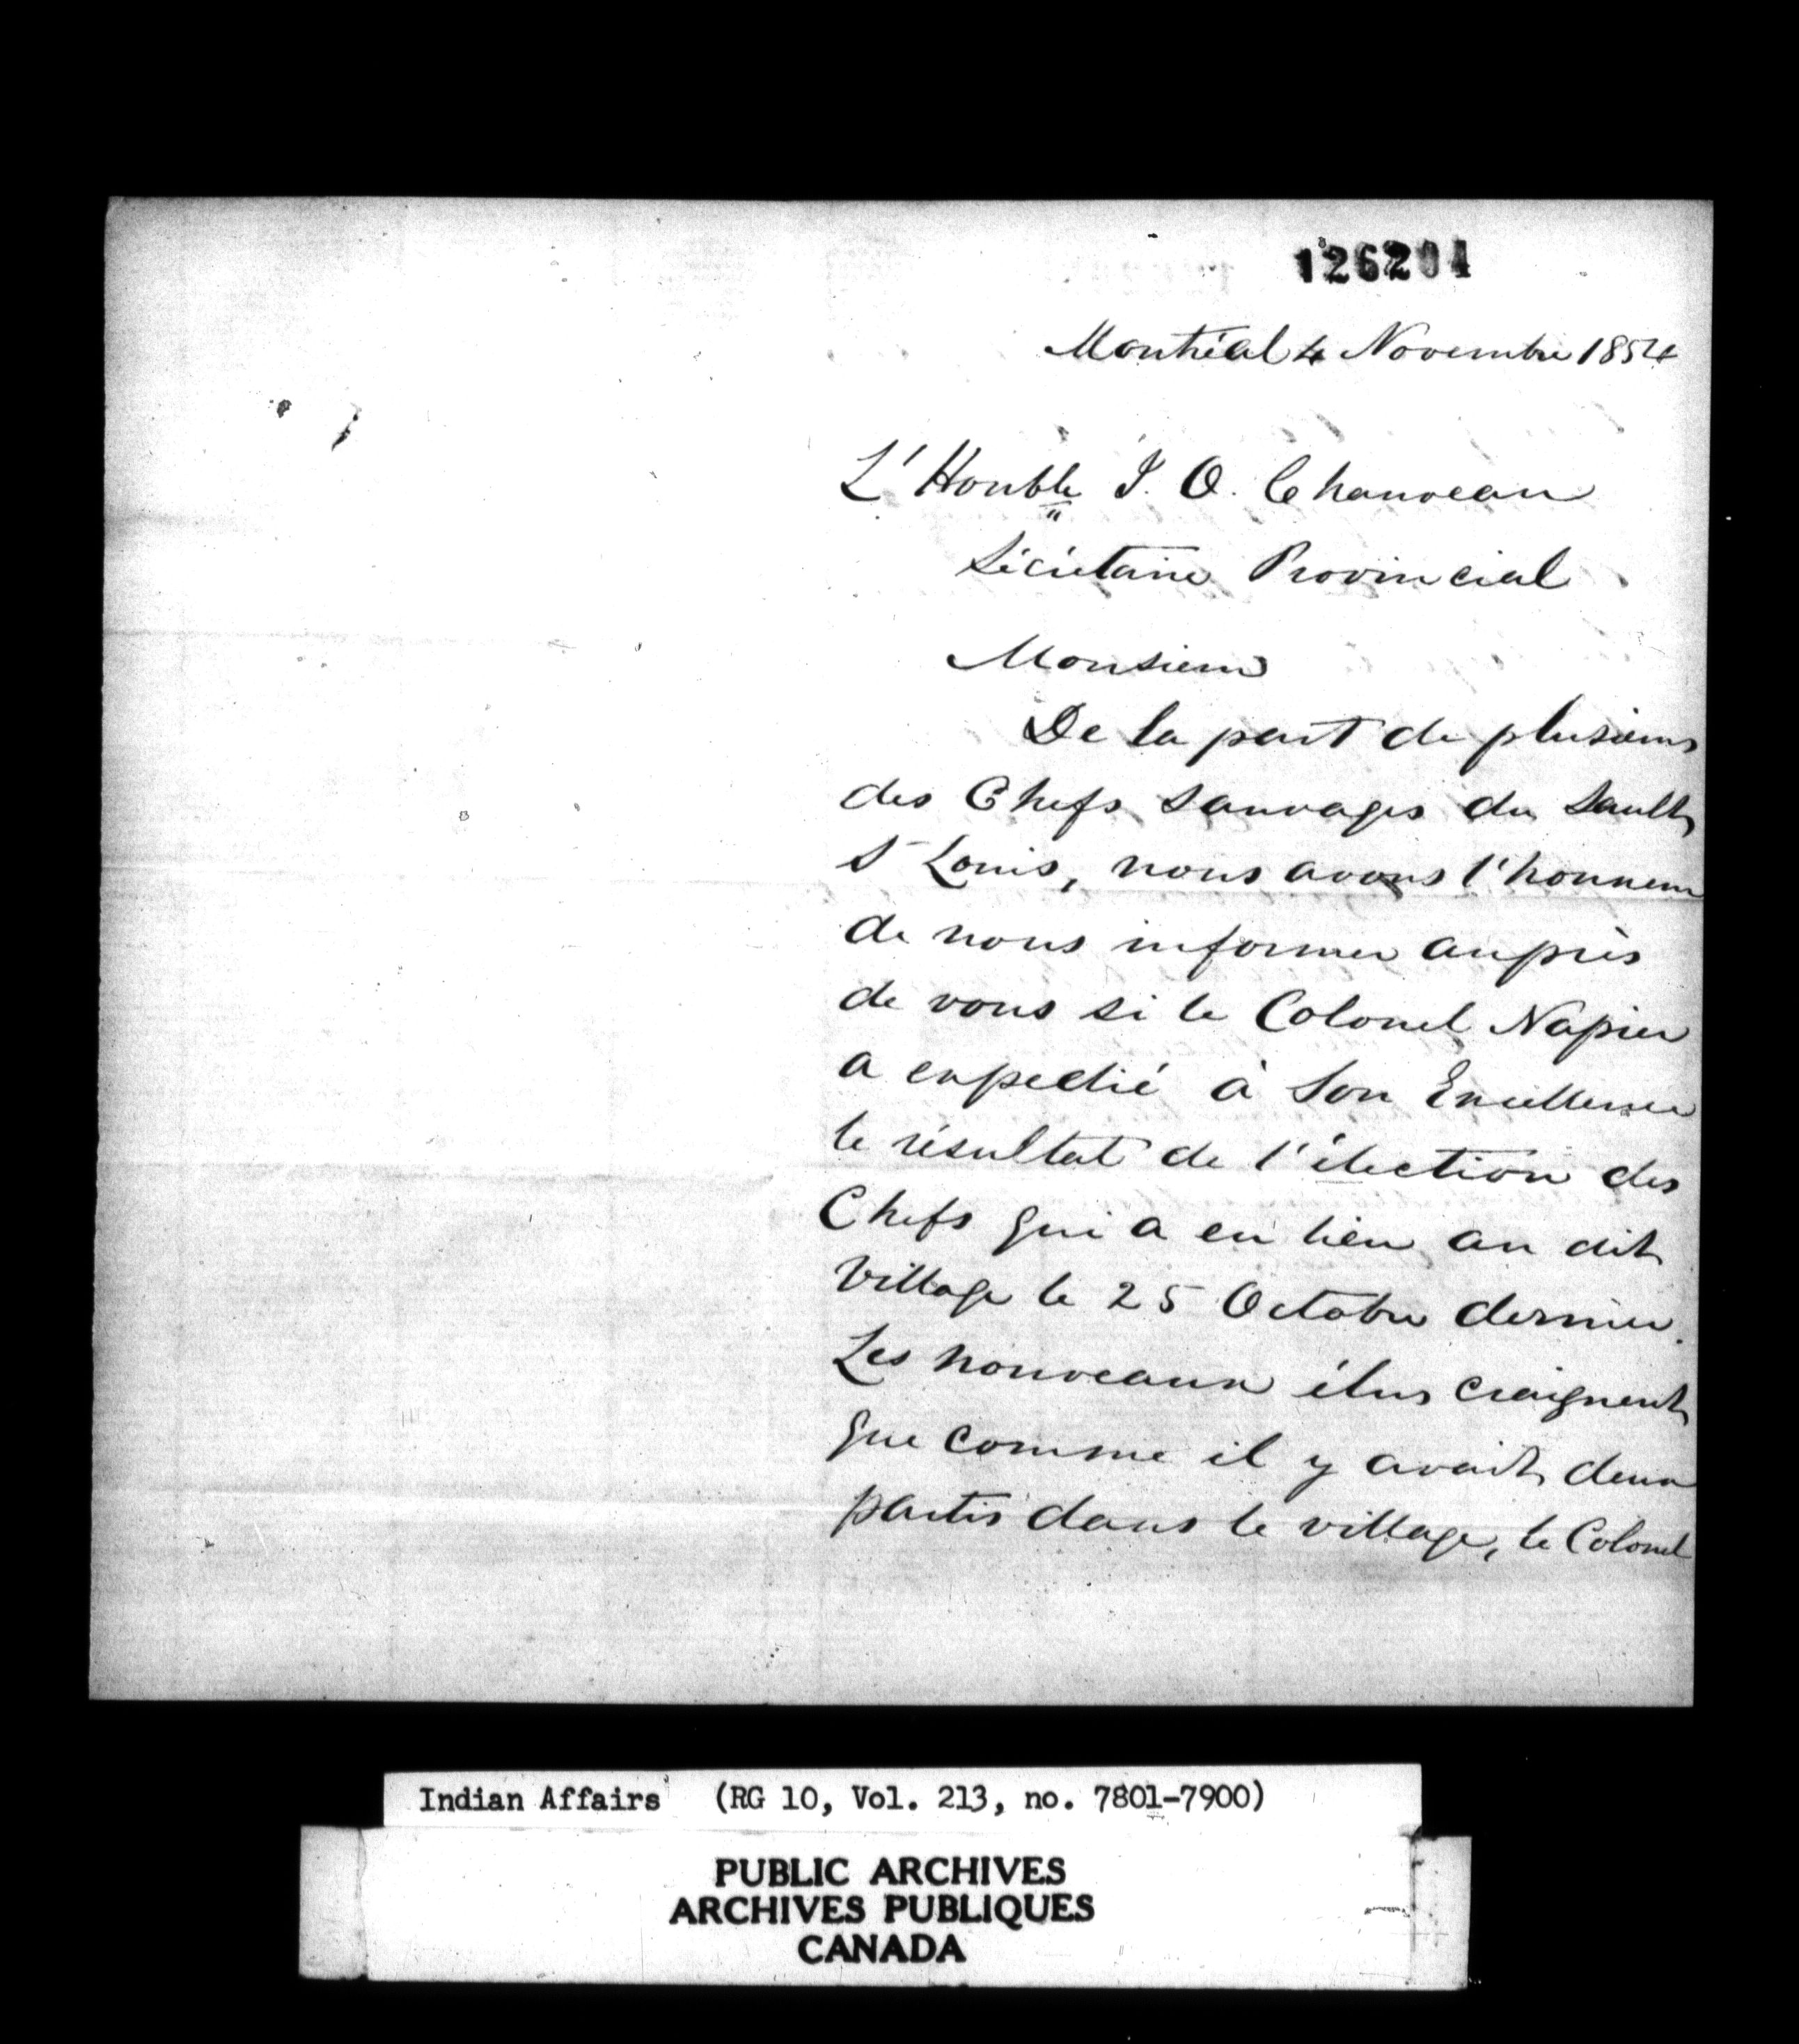 126204
Montréal 4 Novembre 1854
L'Honble P. O. Chauveau
Sécrétaire Provincial
Monsieur
De la part de plusieurs
des Chefs Sauvages du Sault
St Louis, nous avons l'honneur
de nous informer auprès
de vous si le Colonel Napier
a expedié à Son Excellence
le résultat de l'élection des
Chefs qui a eu lieu au dit
Village le 25 Octobre dernier.
Les nouveaux élus craignent
que comme il y avait deux
partis dans le village, le Colonel
Indian Affairs (RG 10, Vol. 213, no. 7801-7900)
PUBLIC ARCHIVES
ARCHIVES PUBLIQUES
CANADA